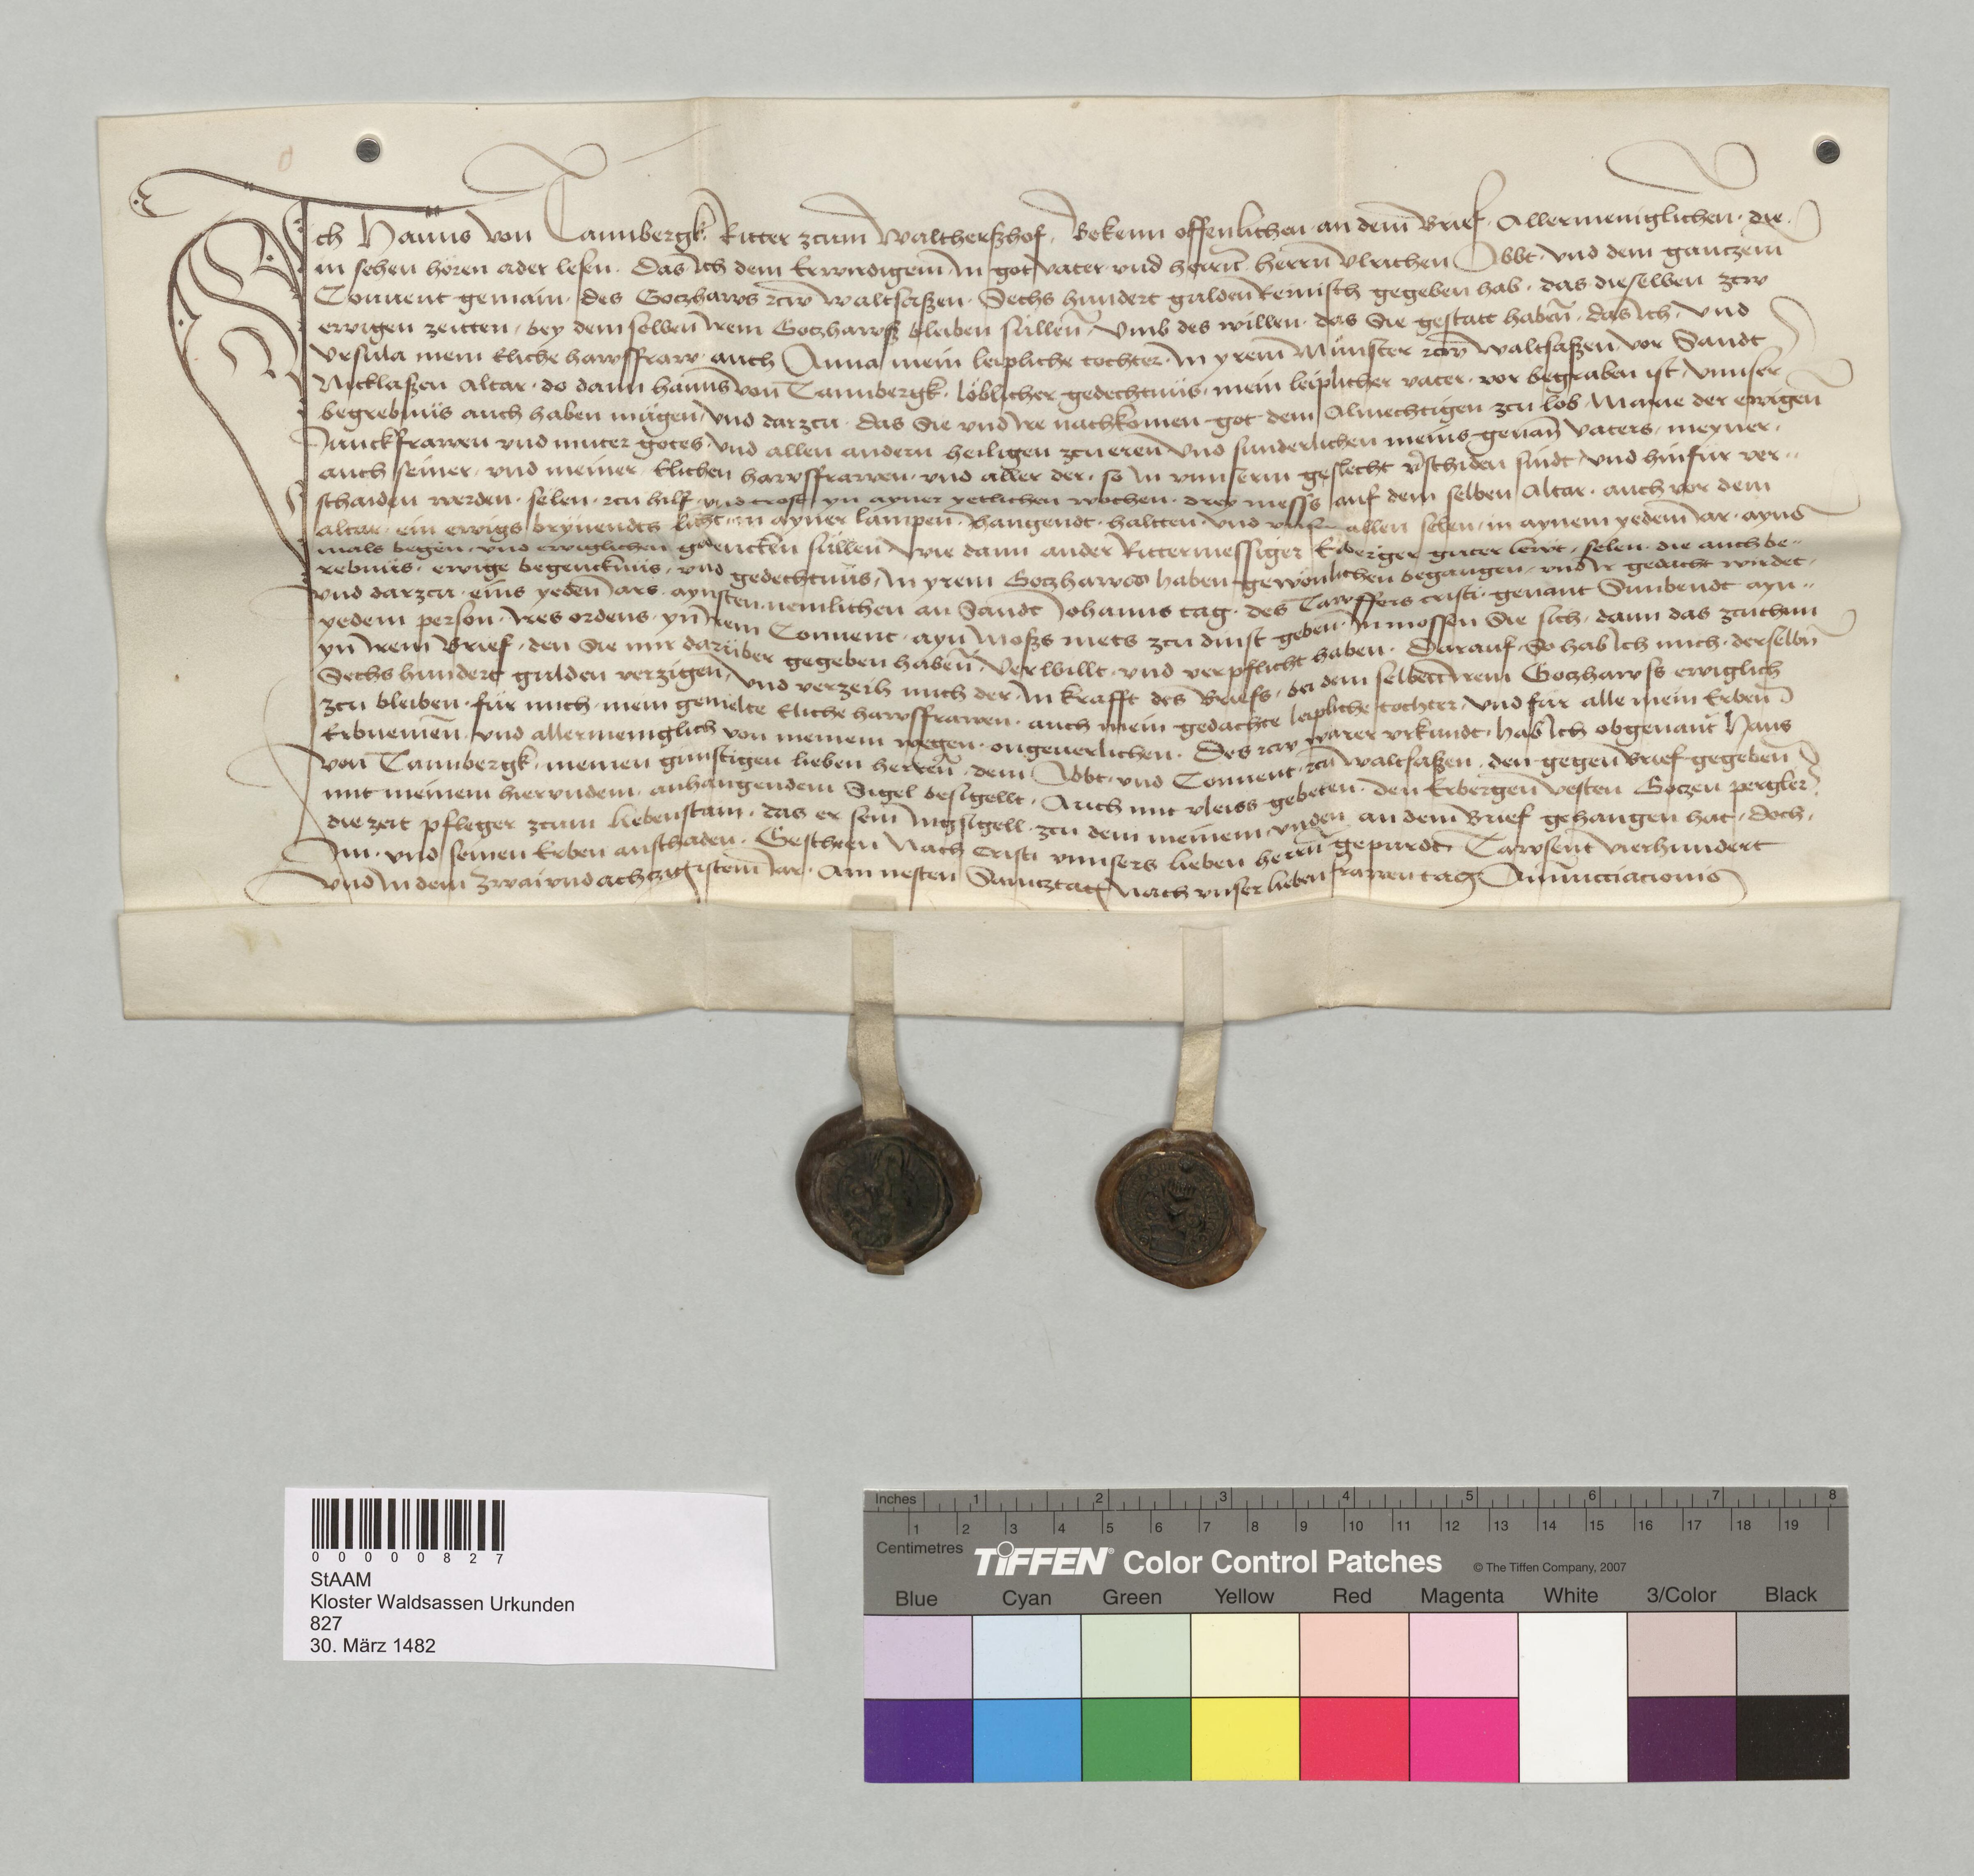 Ich Hanns von Tannbergk Ritter zcum Walthersshof, Bekenn offenlichen an dem Brief Allermeniglichen die
in sehen hören ader lesen. Das Ich dem Erwirdigem In got vater und herren herren Ulrichen Abbt und dem ganczem
Convent gemain des Goczhaws zcw Waltsassen Sechs hundert gulden Reinisch gegeben hab. das dieselben zcw
ewigen zeitten bey dem selben Irem Goczhawss bleiben süllen Umb des willen das Sie gestatt haben, das Ich und
Ursula mein Eliche hawssfraw auch Anna mein leipliche tochter In yrem Münster zcw Waltsassen vor Sandt
Nicklassen Altar do dann hanns von Tannbergk löblicher gedechtnüs mein leiplicher vater vor begraben ist Unnser
begrebnüs auch haben mügen und darzcu das Sie und Ire nachkomen got dem Almechtigen zcu lob Marie der ewigen
Junckfrawen und muter gotes und allen andern heiligen zcu eren Und sunderlichen meins genan vaters, meyner
auch seiner und meiner Elichen hawssfrawen und aller der so In unnserm geslecht verschiden sindt und hinfür ver-
schaiden werden selen zcu hilf und trost yn ayner yetlichen wochen drey messs auf dem selben Altar auch vor dem
altar ein ewigs brynendts licht in ayner lampen hangendt haltten und allen selen in aynem yedem Iar ayns
mals begen und ewiglichen gedencken süllen Wie dann ander Rittermessiger Erberger guter lewt selen die auch be-
rebnüs ewige begencknüs und gedechtnüs In yrem Goczhawss haben gewönlichen begangen und Ir gedacht wirdet
und darzcu eins yeden Iars aynsten nemlichen an Sandt Johanns tag des Tawffers cristi genant Sunbendt ayn
yedem person Ires ordens yn Irem Convent ayn Moss mets zcu dinst geben In mossen Sie sich dann das zcuthun
yn Irem Brief den Sie mir darüber gegeben haben Verwillt und verpflicht haben. Darauf So hab Ich mich derselbn
Sechs hundert gulden verzigen und verzeih mich der In krafft des Briefs bei dem selben Irem Goczhawss ewiglich
zcu bleiben für mich mein gemelte Eliche hawssfrawen auch mein gedachte leipliche tochter und für alle mein Erben
Erbnemen und allermeniglich von meinem wegen ongeuerlichen. Des zcw warer urkundt hab Ich obgenant Hans
von Tannbergk meinen günstigen lieben herren dem Abbt und Convent zcu Waltsassen den gegen Brief gegeben
mit meinem hierundem anhangendem Sigel besigellt Auch mit vleiss gebeten den Erbergen Vesten Goczen pergler
die zeit pfleger zcum liebenstain das er sein Insigell zcu dem meinem unden an dem Brief gehangen hat doch
Im und seinen Erben anschaden. Gescheen Nach Cristi unnsers lieben herrn gepurdt Tawsent Vierhundert
und In dem Zwaiundachzigistem Iar Am nesten Samcztag Nach unser lieben frawen tag Annuncciacionis
00000827
StAAM
Kloster Waldsassen Urkunden
827
30. März 1482
Inches 1 2 3 4 5 6 7 8
1 2 3 4 5 6 7 8 9 10 11 12 13 14 15 16 17 18 19
Centimetres
TIFFEN® Color Control Patches © The Tiffen Company, 2007
Blue Cyan Green Yellow Red Magenta White 3/Color Black